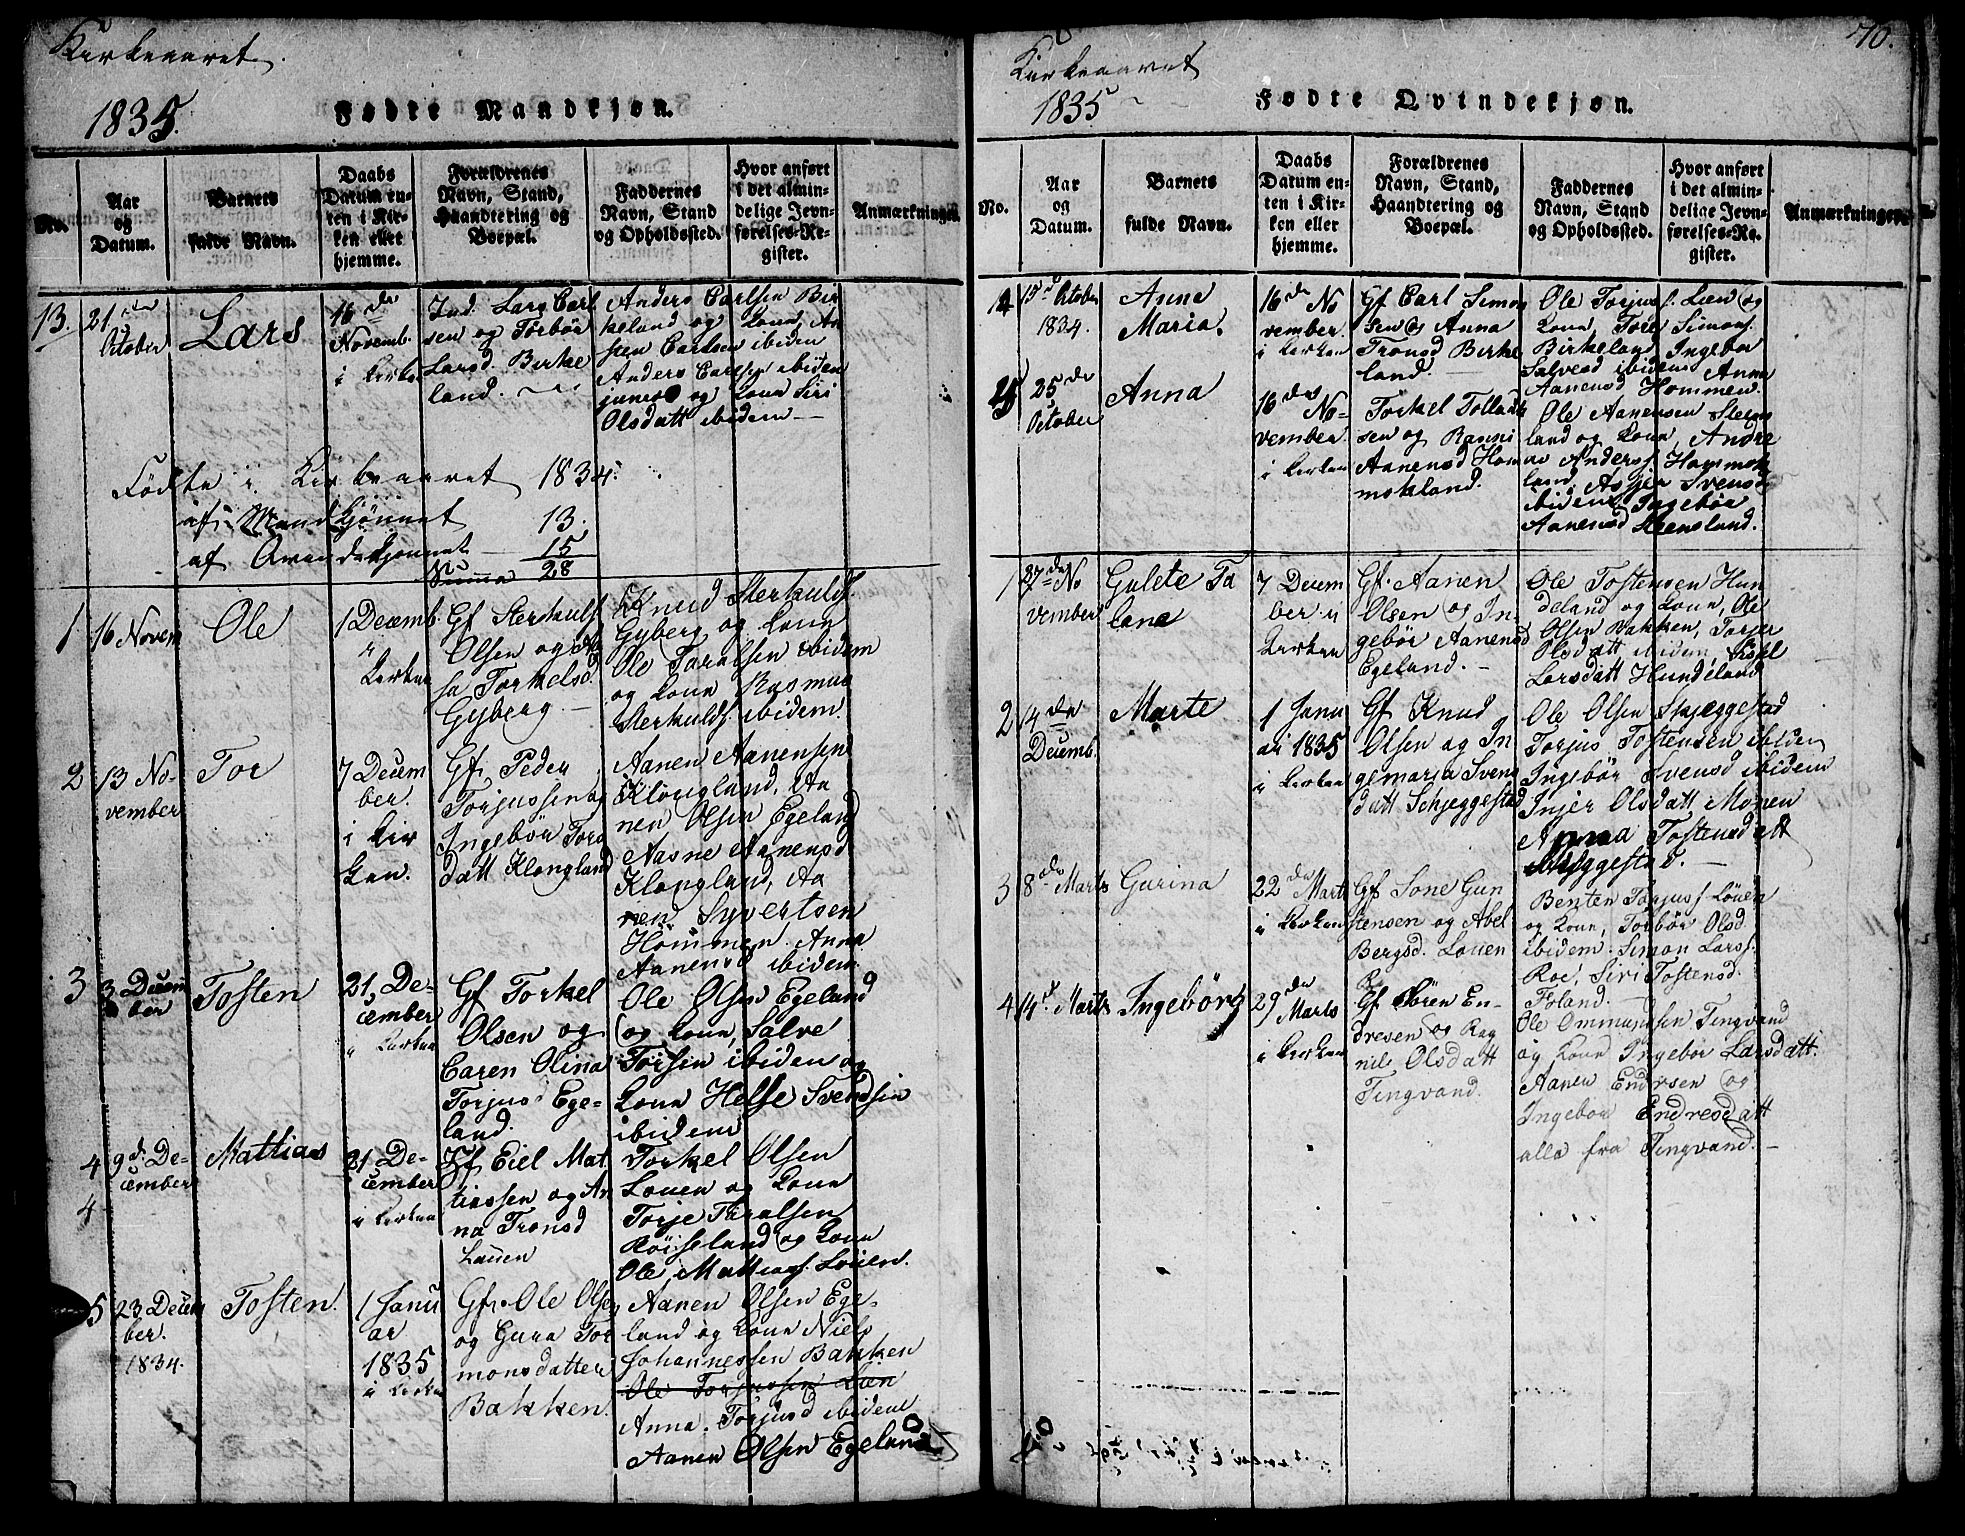 Kirkeaaret
1835.
Fødte Mandkjøn.
No.
Aar og Datum.
Barnets fulde Navn.
Daabs Datum enten i Kirken eller hjemme.
Forældrenes Navn, Stand, Haandtering og Boepæl.
Faddernes Navn, Stand og Opholdssted.
Hvor anført i det almindelige Jevnførelses-Register.
Anmærkninger.
13.
21de
October
Lars
16de
Novemb.
i Kirke
Ind. Lars Carl
sen og Torbør
Larsd. Birke
land.
Anders Carlsen Bir
keland og Kone,
sten Carlsen ibidem
Anders Carlsen ibidem
junior og Kone Siri
Olsdatt ibidem
Fødte i Kirkeaaret 1834.
af Mandkjønnet 13.
af Qvindekjønnet 15
Summa 28
1
16 Novem
Ole
1 Decemb.
i
Kirken
Gf Sterkulfs.
Olsen og
Torkelsd
Gyberg
Knud Sterkulds.
Gyberg og Kone
Ole Taralsen ibidem
og Kone Rasmus
Sterkulds. ibidem.
2
13 No-
vember
Tor
7 Decem
ber.
i Kir
ken.
Gf. Peder
Torjussen og
Ingebør Tors
datt Klongland
Aanen Aanensen
Klongland, Aa
nen Olsen Egeland
Aasne Aanensd
Klongland, Aa
nen Syvertsen
Hommen. Anna
Aanensd ibidem.
3
3 Decem
ber
Tosten
21 De-
cember
i Kirken
Gf Torkel
Olsen og
Caren Olina
Torjusd Ege-
land.
Ole Olsen Egeland
og Kone, Salve
Torsen ibidem og
Kone Helje Svendsen
ibidem
4
9d. De-
cember
4
Mathias
21 De-
cember
i Kirken
Gf Eiel Mat
tiassen og An
na Tronsd
Lauen
Torkel Olsen
Louen og Kone
Torje Taralsen
Røiseland og Kone
Ole Mattias. Louen.
5
23 Decem
ber.
1834.
Tosten.
1 Janu
ar
1835
i Kirken
Gf. Ole Olsen
og Gura Tor
monsdatter
Bakken.
Aanen Olsen Ege-
land og Kone Niels
Johannessen Bakken
Ole Torjussen Lien
Anna Torjusd ibidem
Aanen Olsen Egeland
70.
Kirkeaaret
1835
Fødte Qvindekjøn.
No.
Aar og Datum.
Barnets fulde Navn.
Daabs Datum enten i Kirken eller hjemme.
Forældrenes Navn, Stand, Haandtering og Boepæl.
Faddernes Navn, Stand og Opholdssted.
Hvor anført i det almindelige Jevnførelses-Register.
Anmærkninger.
14
15d October
1834.
Anne
Maria.
16de No
vember
i Kirken
Gf Carl Simon
sen og Anna
Tronsd Birke
land.
Ole Torjuss. Lien og
Kone, Tore Simons.
Birkeland Ingebor
Salvesd ibidem Anne
Aanensd Hommen.
15
25de
October
Anna
16de No-
vember
i Kirken
Torkel Tollak
sen og Ranni
Aanensd Hom
mokland.
Ole Aanensen Steens
land og Kone, Andre
as Anderss. Hommok
land, Asper Svensd
ibidem Ingebør
Aanensd Steensland.
1
27de No
vember
Gulete Ta
lene
7 Decem
ber i
Kirken
Gf. Aanen
Olsen og In
gebør Aanensd
Egeland.
Ole Tostensen Hun
deland og Kone, Ole
Olsen Bakken, Torjer
Olsdatt ibidem,
Larsdatt Hundeland
2
14de
Decemb.
Marte
1 Janu
ar 1835
i Kirken
Gf Knud
Olsen og In
gemarja Svens
datt Schjeggestad
Ole Olsen Skjeggestad
Torjus Tostensen ibidem
Ingebør Svensd ibidem
Injer Olsdatt Monen
Anna Tostensdatt
Skjeggestad.
3
8de Marts
Gurina
22de Marts
i Kirken
Gf. Sone Gun
stensen og Abel
Bergsd. Louen
Benten Torjuss. Løuen
og Kone, Torbør Olsd
ibidem. Simon Larss.
Roe, Siri Tostensd.
Foland.
4
14d. Marts
Ingebörg
29de
Marts
i Kirken
Gf Sören En-
dresen og Rag
nile Olsdatt
Tingvand.
Ole Ommundsen Tingvand
og Kone Ingebor Larsdatt.
Aanen Endrsen og
Ingebor Endresdatt
alle fra Tingvand.